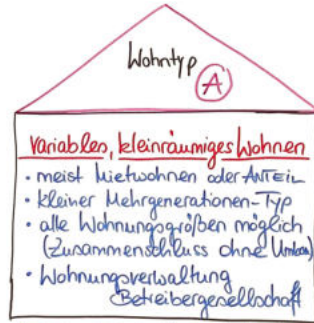 Wohntyp
A
Variables, kleinräumiges Wohnen
• meist Mietwohnen oder ANTEIL
• kleiner Mehrgenerationen-Typ
• alle Wohnungsgrößen möglich
(Zusammenschluss ohne Umbau)
• Wohnungsverwaltung
Betreibergesellschaft